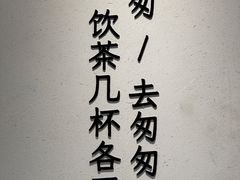 匆/去匆匆
饮茶几杯各